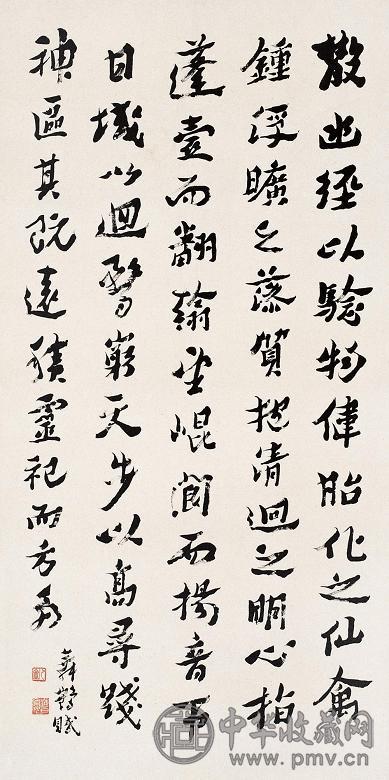 散幽經以驗物偉胎化之仙禽
鍾浮曠之藻質抱清迥之明心指
蓬壺而翻翰望崐閬而揚音帀
日域以迴騖窮天步以高尋踐
神區其既遠積靈祀而方多
舞鶴賦
中华收藏网